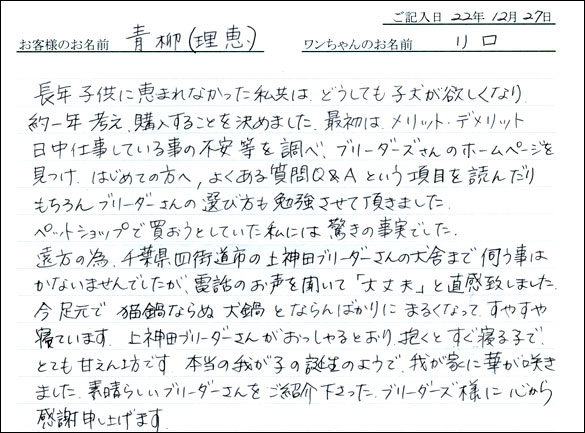 ご記入日 22年 12月 27日
お客様のお名前 青柳(理恵) ワンちゃんのお名前 リロ
長年子供に恵まれなかった私共は、どうしても子犬が欲しくなり
約一年考え、購入することを決めました。最初は、メリット・デメリット
日中仕事している事の不安等を調べ、ブリーダーズさんのホームページを
見つけ、はじめての方へ,よくある質問Q&Aという項目を読んだり
もちろんブリーダーさんの選び方も勉強させて頂きました。
ペットショップで買おうとしていた私には驚きの事実でした。
遠方の為、千葉県四街道市の上神田ブリーダーさんの犬舎まで伺う事は
かないませんでしたが、電話のお声を聞いて「大丈夫」と直感致しました。
今足元で猫鍋ならぬ犬鍋とならんばかりにまるくなって、すやすや
寝ています。上神田ブリーダーさんがおっしゃるとおり、抱くとすぐ寝る子で、
とても甘えん坊です。本当の我が子の誕生のようで、我が家に華が咲き
ました。素晴らしいブリーダーさんをご紹介下さった、ブリーダーズ様に心から
感謝申し上げます。